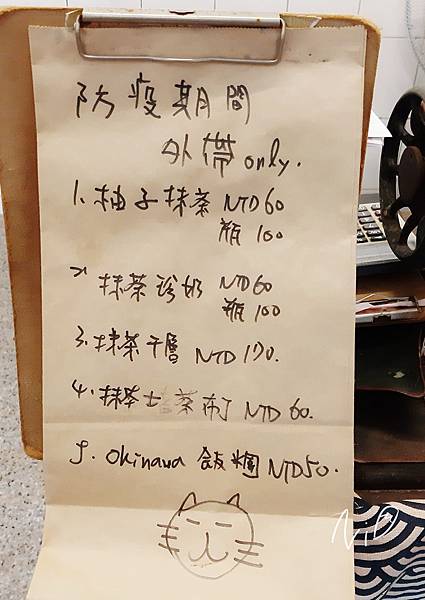 防疫期間
外帶 only.
1. 柚子抹茶 NTD 60
瓶 100
2. 抹茶珍奶 NTD 60
瓶 100
3. 抹茶千層 NTD 170.
4. 抹茶土茶布丁 NTD 60.
5. Okinawa 飯糰 NTD 50.